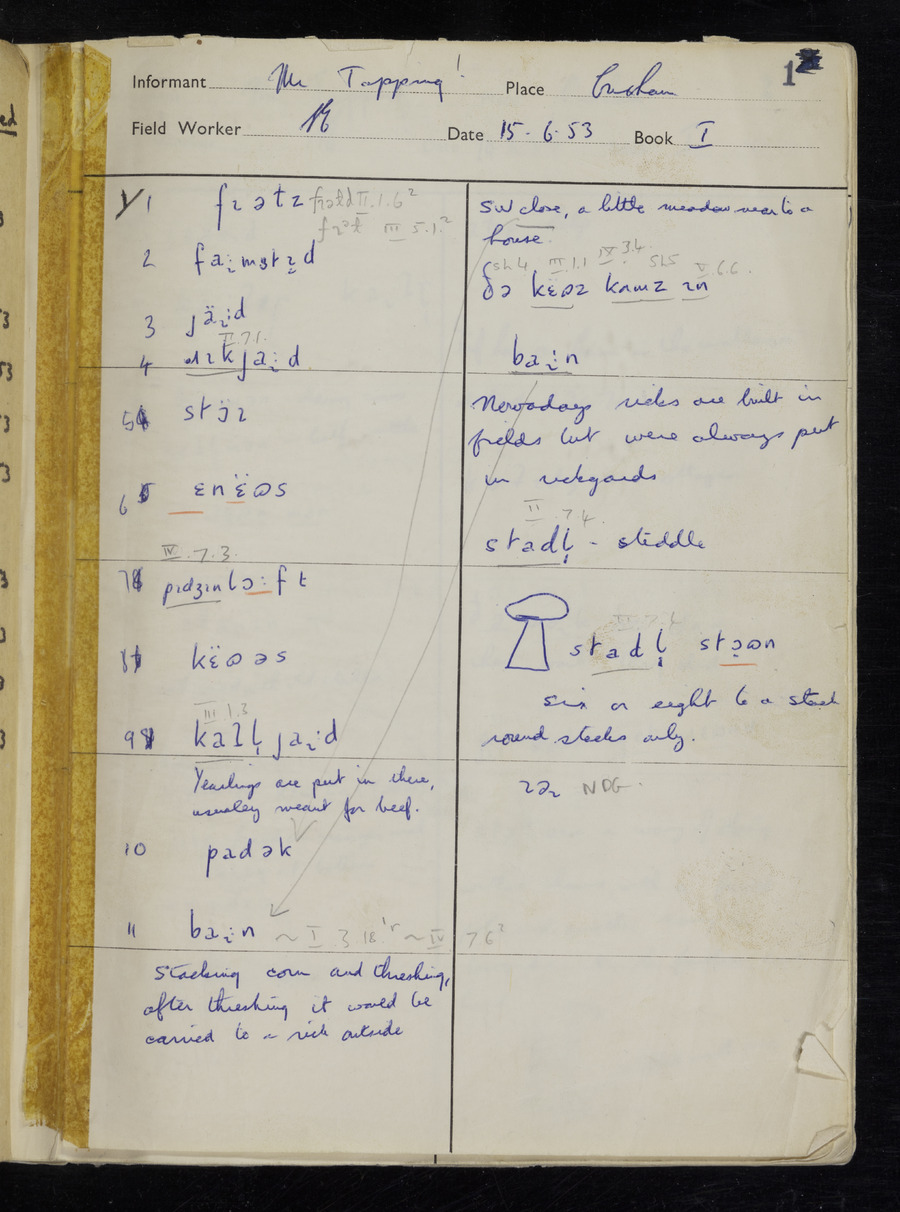 Informant Mr Tapping Place 1
Field Worker Date 15-6-53 Book I
1 frəts II.1.6²
III 5.1.²
2
3
II.7.1.
4
5 stɹ̈ɪ
6 ɛnɛ̈ʊs
IV.7.3.
7 pɪdʒɪnlɔːft
8 kɛ̈ʊəs
III 1,3
9
Yearlings are put in there,
usually meant for beef.
10 padək
11 ~ I 3.18 ~ IV 7 6²
Stacking corn and threshing,
after threshing it would be
carried to a rick outside
SW close, a little meadow near to a
house.
sh4 III.1.1 IV 3.4. Sh5 V.6.6.
ðə
Nowadays ricks are built in
fields but were always put
in rickyards
II 7.4.
stadl̩ - steddle
II 7.4
stadl̩ stɔʊn
six or eight to a stack
round stacks only.
NDG.